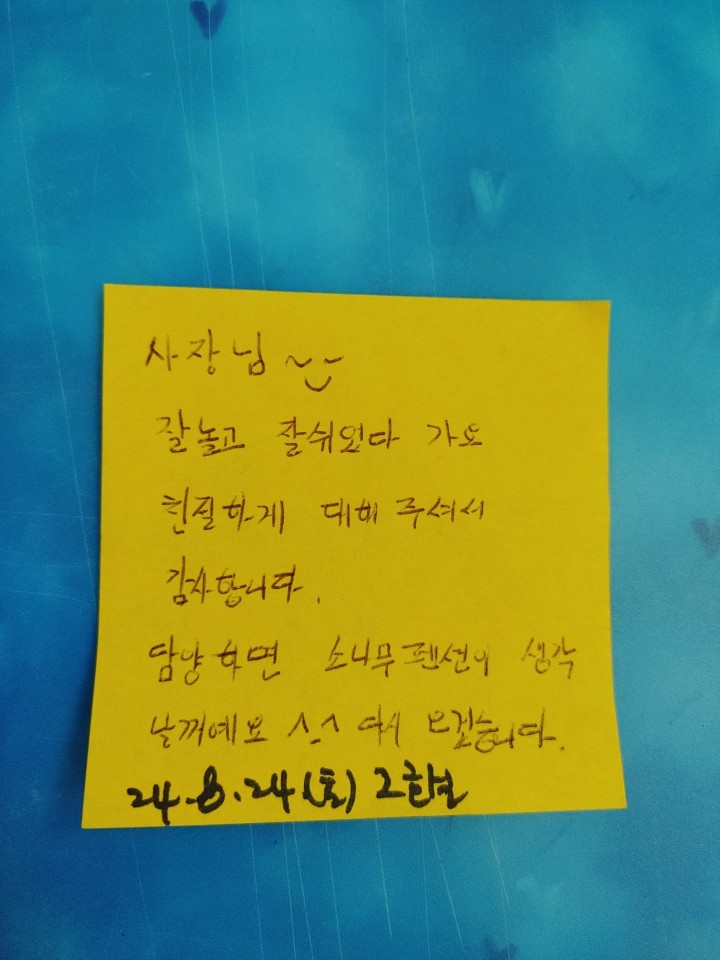 사장님 ~
잘놀고 잘쉬었다 가요
친절하게 대해 주셔서
감사합니다.
담양하면 소나무펜션이 생각
날꺼예요 ^-^ 다시 오겠습니다.
24.8.24(토)